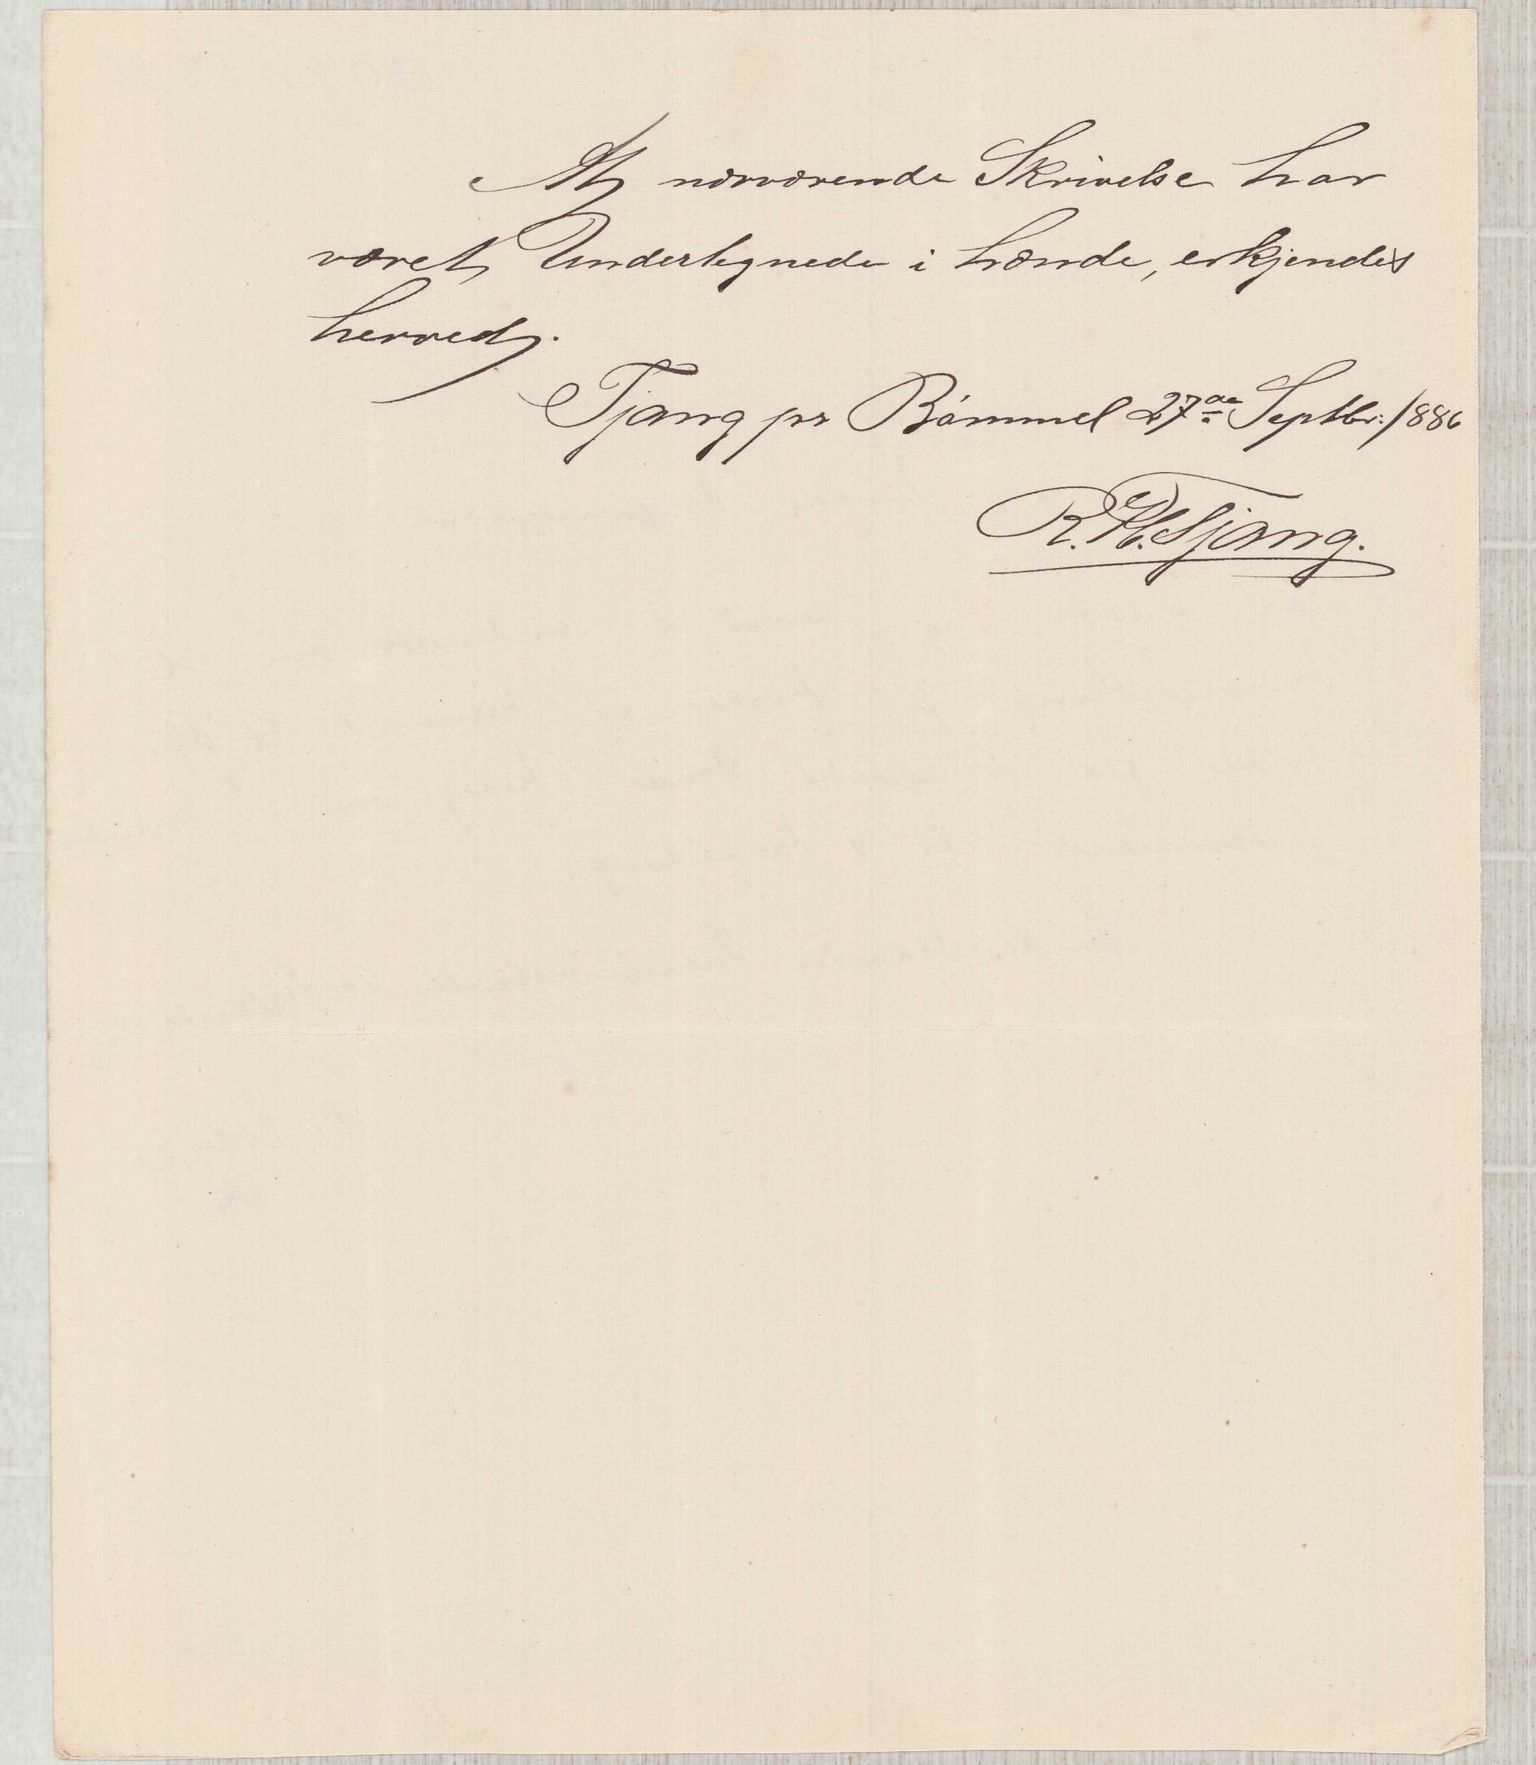 At nærværende Skrivelse har
været Undertegnede i hænde, erkjendes
herved.
Tjong pr Bømmel 27de Septbr: 1886
R. H. Tjong.